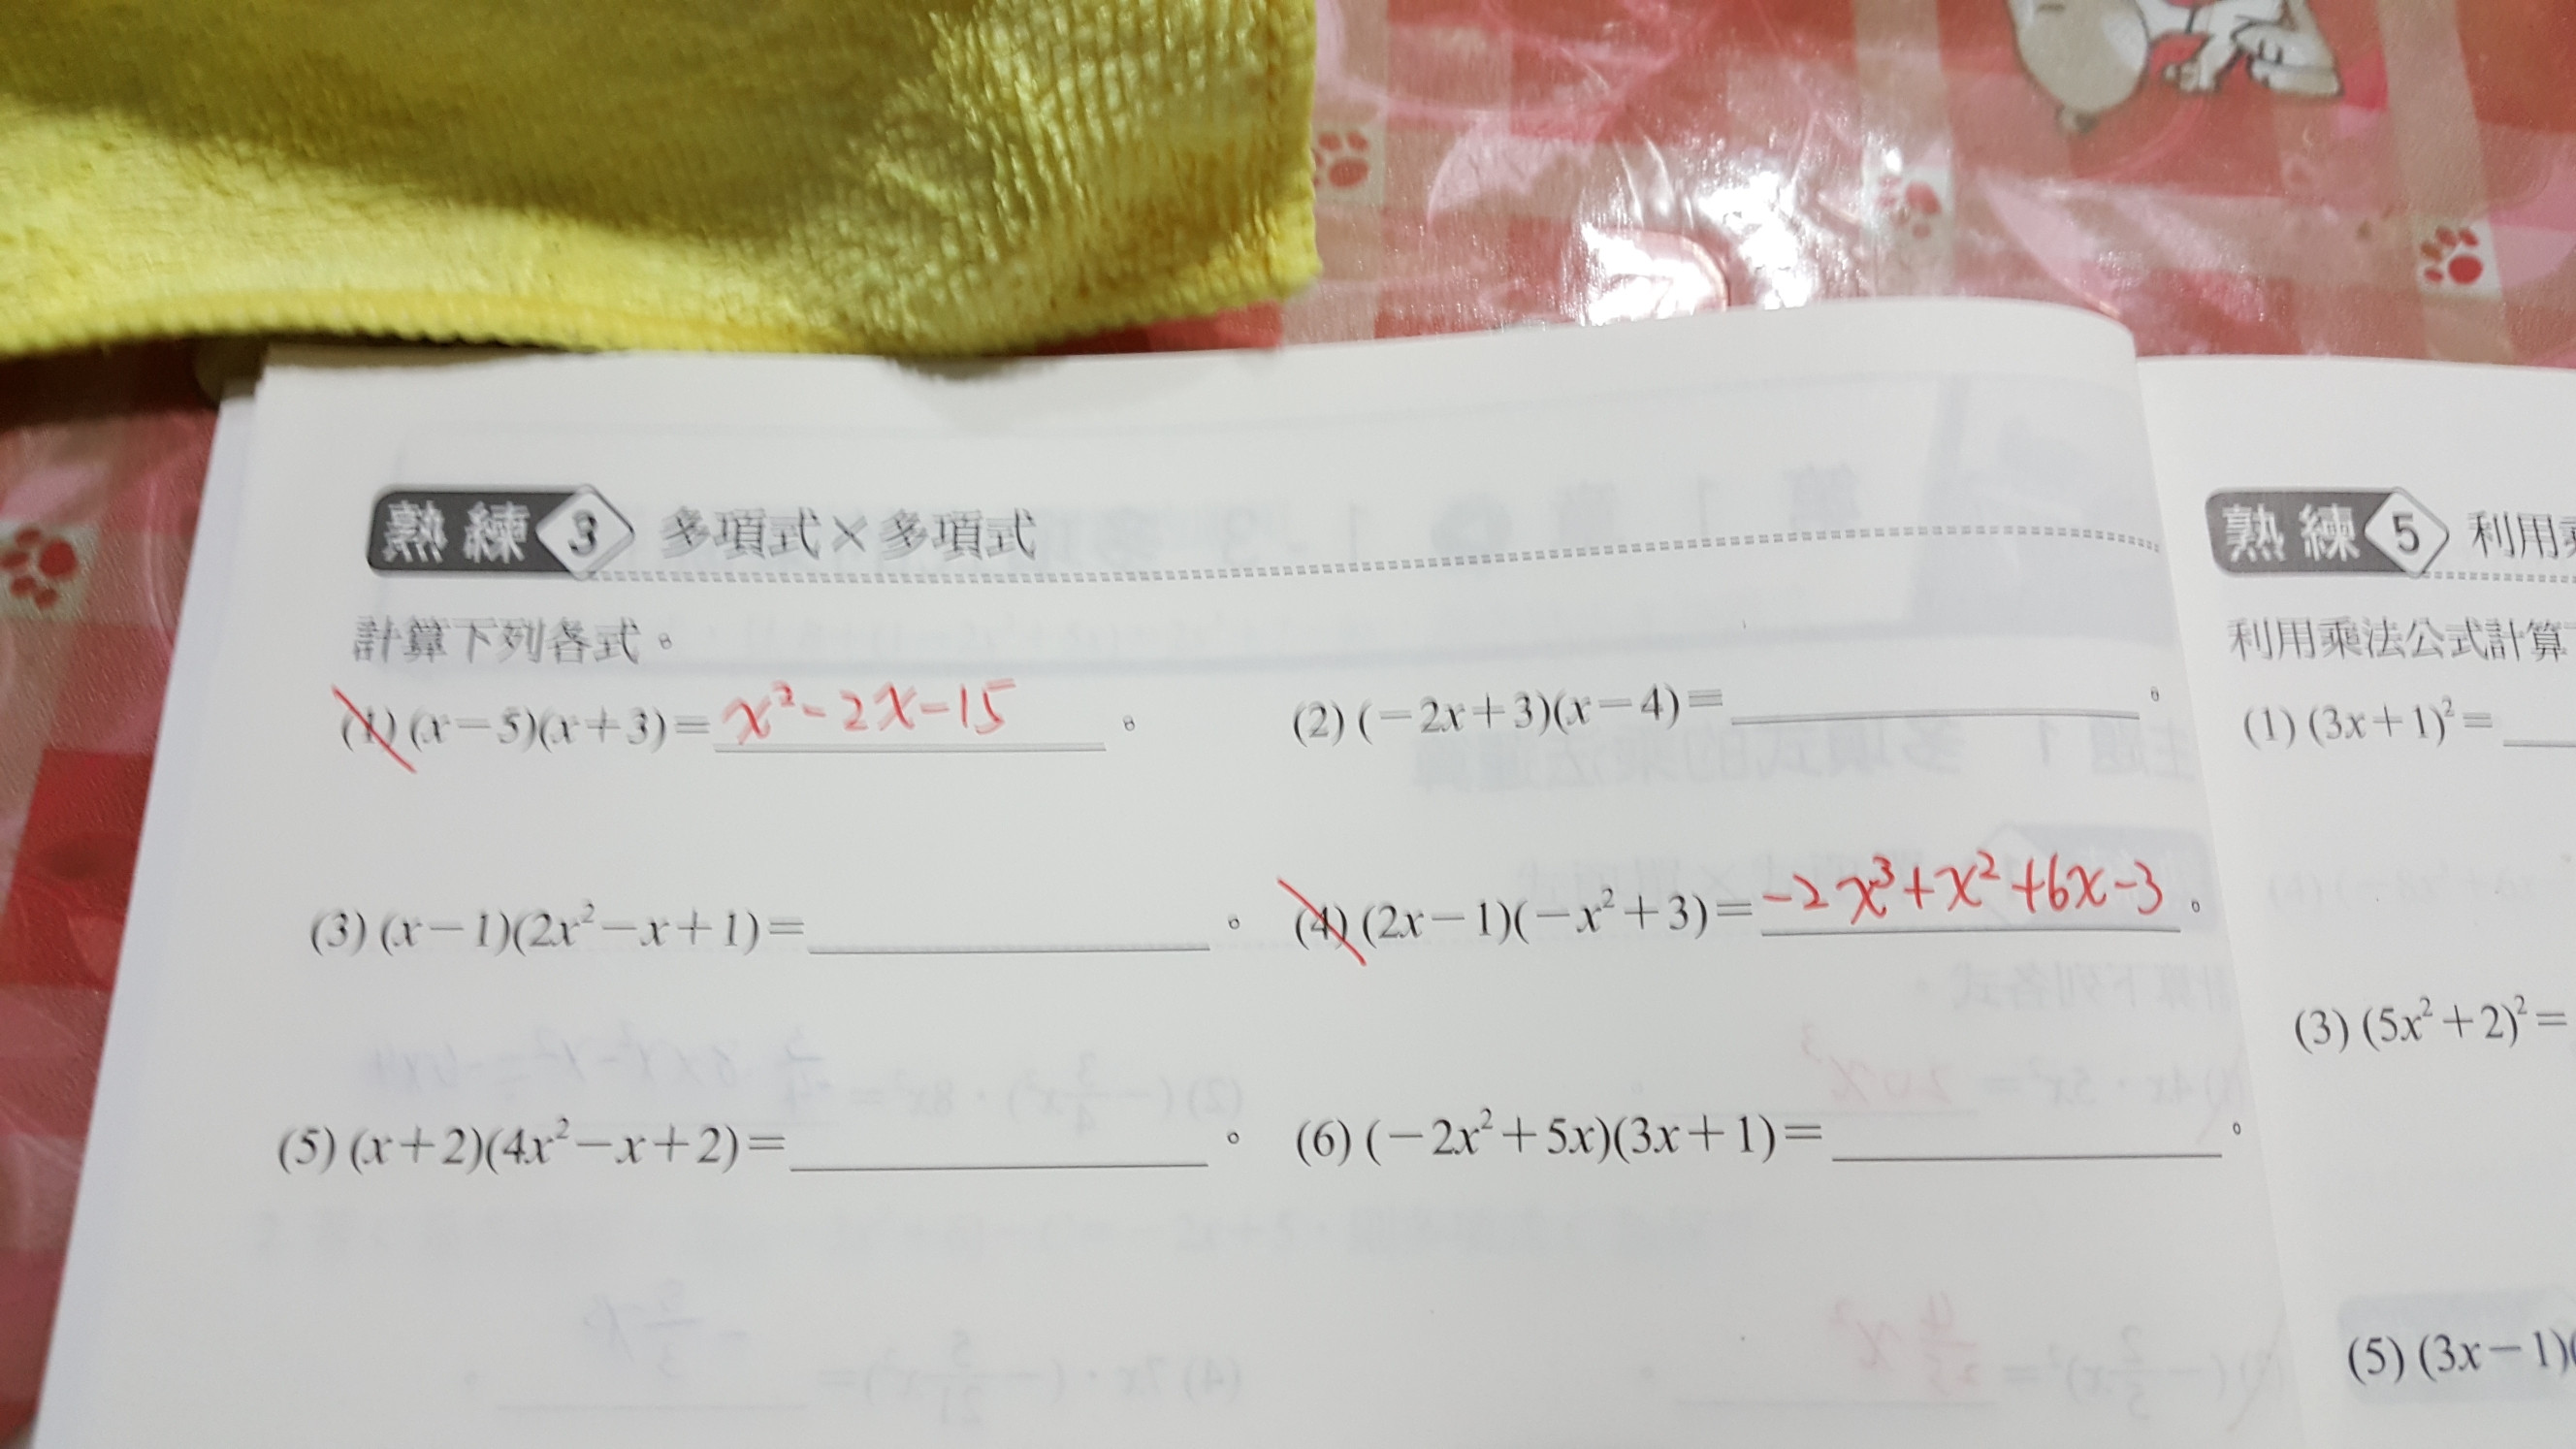 熟練 3 多項式×多項式
計算下列各式。
(1) (x−5)(x+3)= x²-2x-15 。
(2) (−2x+3)(x−4)= 。
(3) (x−1)(2x²−x+1)= 。
(4) (2x−1)(−x²+3)= -2x³+x²+6x-3 。
(5) (x+2)(4x²−x+2)= 。
(6) (−2x²+5x)(3x+1)= 。
熟練 5 利用
利用乘法公式計算
(1) (3x+1)²=
(3) (5x²+2)²=
(5) (3x−1)(